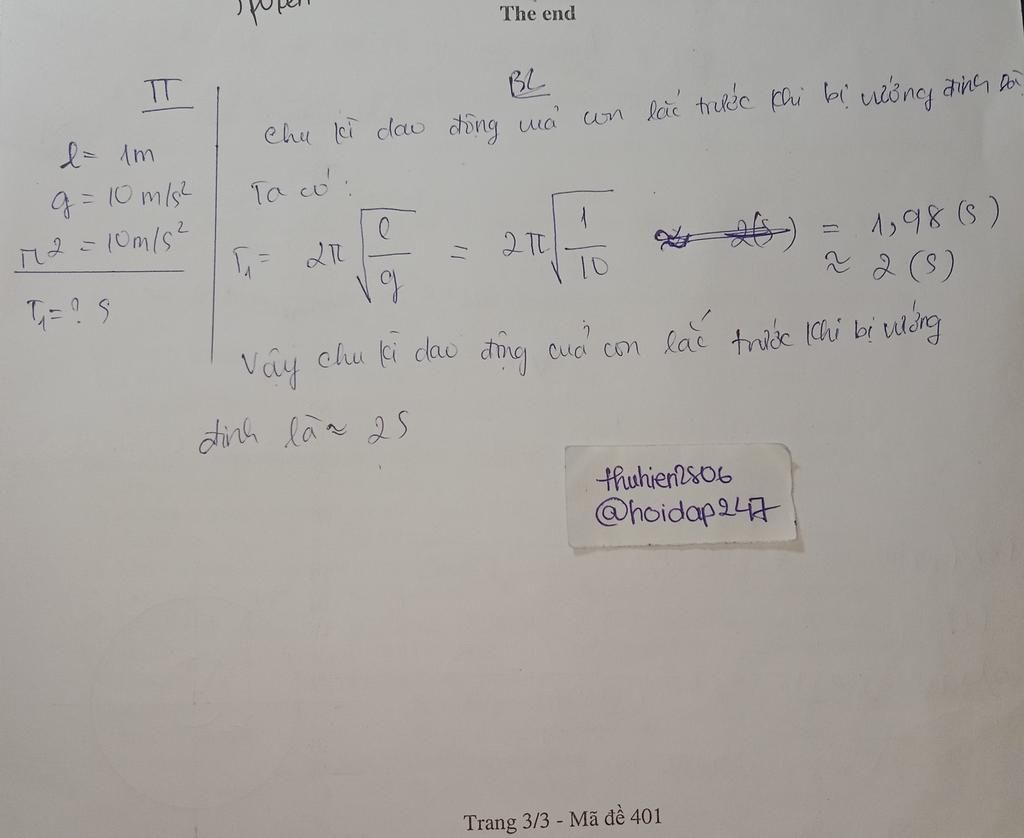 The end
TT
l = 1m
g = 10 m/s²
π2 = 10m/s²
T₁ = ? s
BL
Chu kì dao động cuả con lắc trước khi bị vướng đinh
Ta có:
T₁ = 2π√(l/g) = 2π√(1/10) = 1,98 (s)
≈ 2 (s)
Vậy chu kì dao động cuả con lắc trước khi bị vướng
đinh là ≈ 2s
thuhien2806
@hoidap247
Trang 3/3 - Mã đề 401